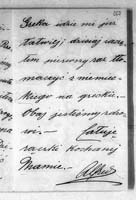 Greka idzie mi już
łatwiej; dzisiaj uczy-
łem pierwszy raz tłu-
maczyć z niemiec-
kiego na greckie.
Obaj jesteśmy zdro-
wi. — Całuję
rączki kochanej
Mamie. —
Alfred